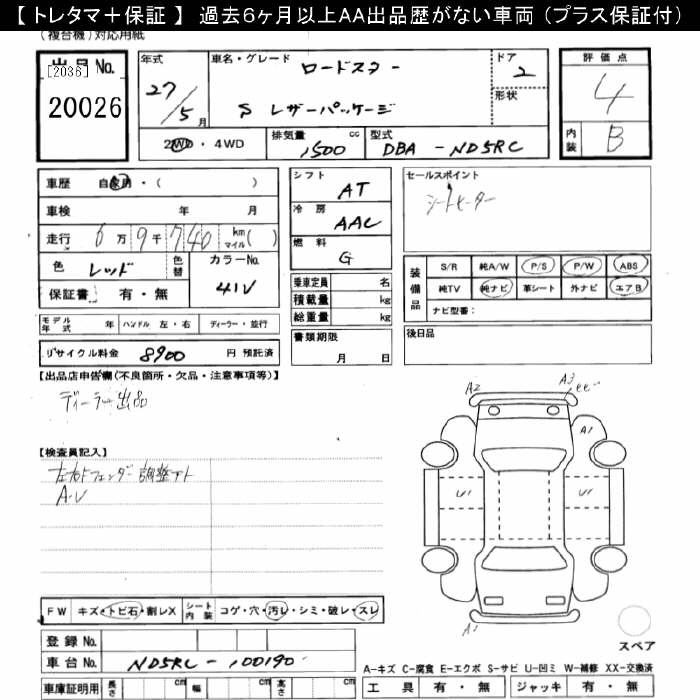 【 トレタマ＋保証 】 過去6ヶ月以上AA出品歴がない車両 (プラス保証付)
(複合機) 対応用紙
出品 No.
[2036]
20026
年式
27/5月
車名・グレード
ロードスター
S レザーパッケージ
ドア
2
形状
評価点
4
内装
B
2WD ・ 4WD
排気量 cc
1500
型式
DBA - ND5RC
車歴 自家用・( )
車検 年 月
走行 6万9千740 km マイル ( )
色 レッド
色替
カラーNo.
41V
保証書 有 ・ 無
シフト AT
冷房 AAC
燃料 G
乗車定員 名
積載量 kg
総重量 kg
書類期限
月 日
セールスポイント
シートヒーター
装備品
S/R 純A/W P/S P/W ABS
純TV 純ナビ 革シート 外ナビ エアB
ナビ型番：
後日品
モデル年式 年 ハンドル 左・右 ディーラー・並行
リサイクル料金 8900 円 預託済
【出品店申告欄(不良箇所・欠品・注意事項等)】
ディーラー出品
【検査員記入】
A・U
A2
A3
A1
U1
U1
A1
FW キズ・トビ石・割レX シート内装 コゲ・穴・汚レ・シミ・破レ・スレ
スペア
登録 No.
車台 No. ND5RC - 100190
A－キズ C－腐食 E－エクボ S－サビ U－凹ミ W－補修 XX－交換済
車庫証明用 長さ cm 幅 cm 高さ cm
工具 有 ・ 無 ジャッキ 有 ・ 無